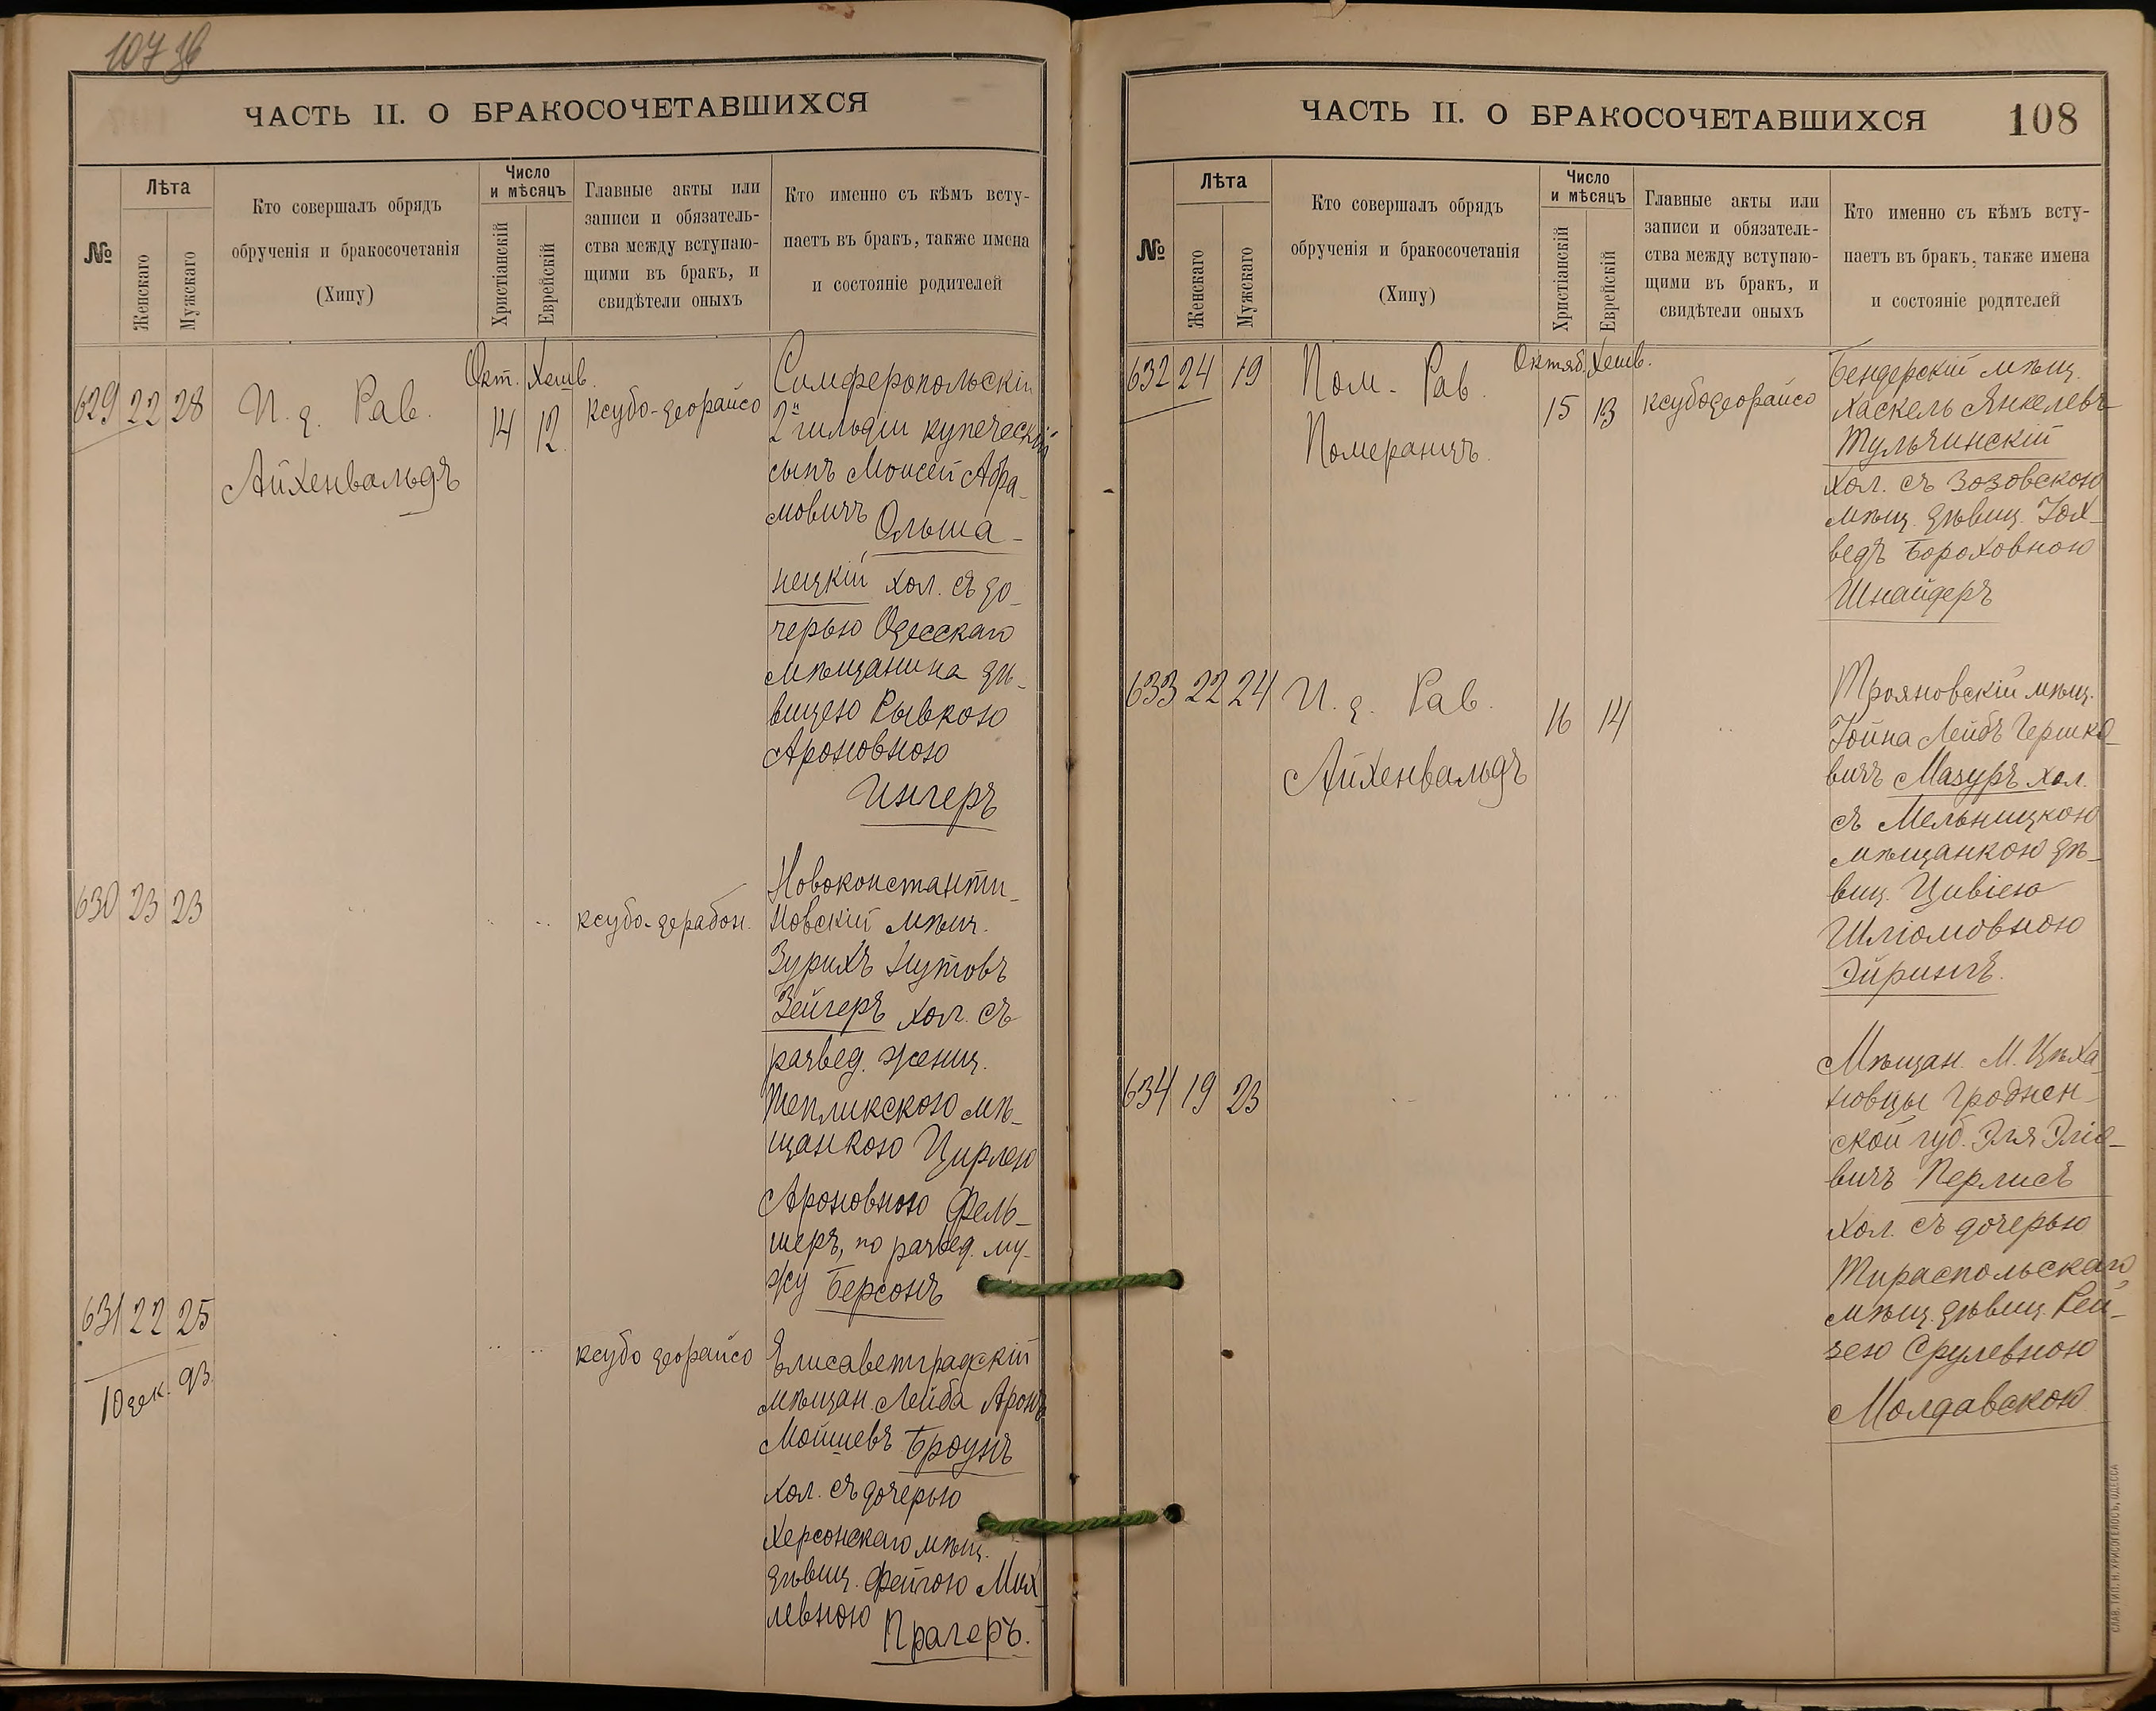 107 об
ЧАСТЬ II. О БРАКОСОЧЕТАВШИХСЯ
№
Лѣта
Женскаго
Мужскаго
Кто совершалъ обрядъ
обрученія и бракосочетанія
(Хипу)
Число
и мѣсяцъ
Христіанскій
Еврейскій
Главные акты или
записи и обязатель-
ства между вступаю-
щими въ бракъ, и
свидѣтели оныхъ
Кто именно съ кѣмъ всту-
паетъ въ бракъ, также имена
и состояніе родителей
629 22 28
И. д. Рав.
Айхенвальдъ
Окт. Хешв.
14 12
ксубо-деорайсо
Симферопольскій
2й гильдіи купеческій
сынъ Моисей Абра-
мовичъ Ольша-
нецкій хол. съ до-
черью Одесскаго
мѣщанина дѣ-
вицею Рывкою
Ароновною
Ингеръ
630 23 23
ксубо-дерабон.
Новоконстанти-
новскій мѣщ.
Зурихъ Нутовъ
Зейгеръ хол. съ
развед. женщ.
Тепликскою мѣ-
щанкою Цирлею
Ароновною Фель-
шеръ, по развед. му-
жу Берсонъ
631 22 25
10 дек. 93.
ксубо деорайсо
Елисаветградскій
мѣщан. Лейба Аронъ
Мойшевъ Броунъ
хол. съ дочерью
Херсонскаго мѣщ.
дѣвиц. Фейгою Мих-
левною
Прагеръ.
ЧАСТЬ II. О БРАКОСОЧЕТАВШИХСЯ
108
№
Лѣта
Женскаго
Мужскаго
Кто совершалъ обрядъ
обрученія и бракосочетанія
(Хипу)
Число
и мѣсяцъ
Христіанскій
Еврейскій
Главные акты или
записи и обязатель-
ства между вступаю-
щими въ бракъ, и
свидѣтели оныхъ
Кто именно съ кѣмъ всту-
паетъ въ бракъ, также имена
и состояніе родителей
632 24 19
Пом. Рав.
Померанцъ.
Октяб. Хешв.
15 13
ксубодеорайсо
Бендерскій мѣщ.
Хаскель Янкелевъ
Тульчинскій
хол. съ Зозовскою
мѣщ. дѣвиц. Іох-
ведъ Бороховною
Шнайдеръ
633 22 24
И. д. Рав.
Айхенвальдъ
16 14
Трояновскій мѣщ.
Іойна Лейбъ Гершко-
вичъ Мазуръ хол.
съ Мельницкою
мѣщанкою дѣ-
виц. Цивіею
Шліомовною
Эйрингъ.
634 19 23
Мѣщан. М. Цѣха
новцы Гроднен-
ской губ. Эля Эліо-
вичъ Перлисъ
хол. съ дочерью
Тираспольскаго
мѣщ. дѣвиц. Рей-
зею Срулевною
Молдавскою
СЛАВ. ТИП. Н. ХРИСОГЕЛОСЪ, ОДЕССА